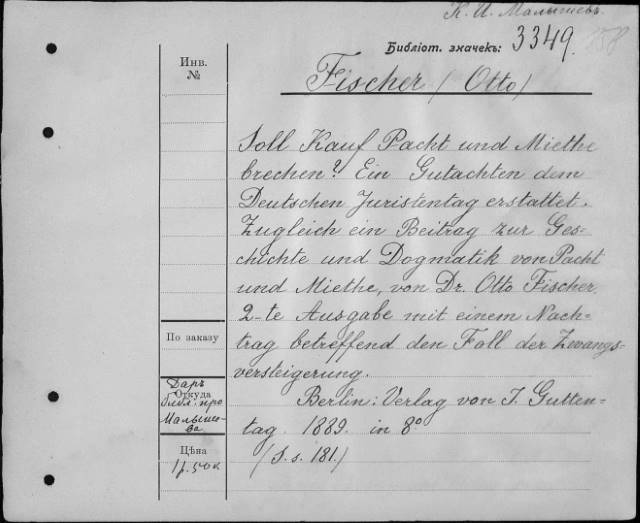 К. И. Малышевъ.
Библіот. значекъ: 3349. 158
Инв.
№
Fischer (Otto)
Soll Kauf Pacht und Miethe
brechen? Ein Gutachten dem
Deutschen Juristentag erstattet.
Zugleich ein Beitrag zur Ges-
chichte und Dogmatik von Pacht
und Miethe, von Dr. Otto Fischer.
2-te Ausgabe mit einem Nach-
trag betreffend den Fall der Zwangs-
versteigerung.
Berlin: Verlag von J. Gutten-
tag. 1889. in 8°
(S. s. 181.)
По заказу
Даръ
Откуда
библ. про
Малыше-
ва
Цѣна
1 р. 50 к